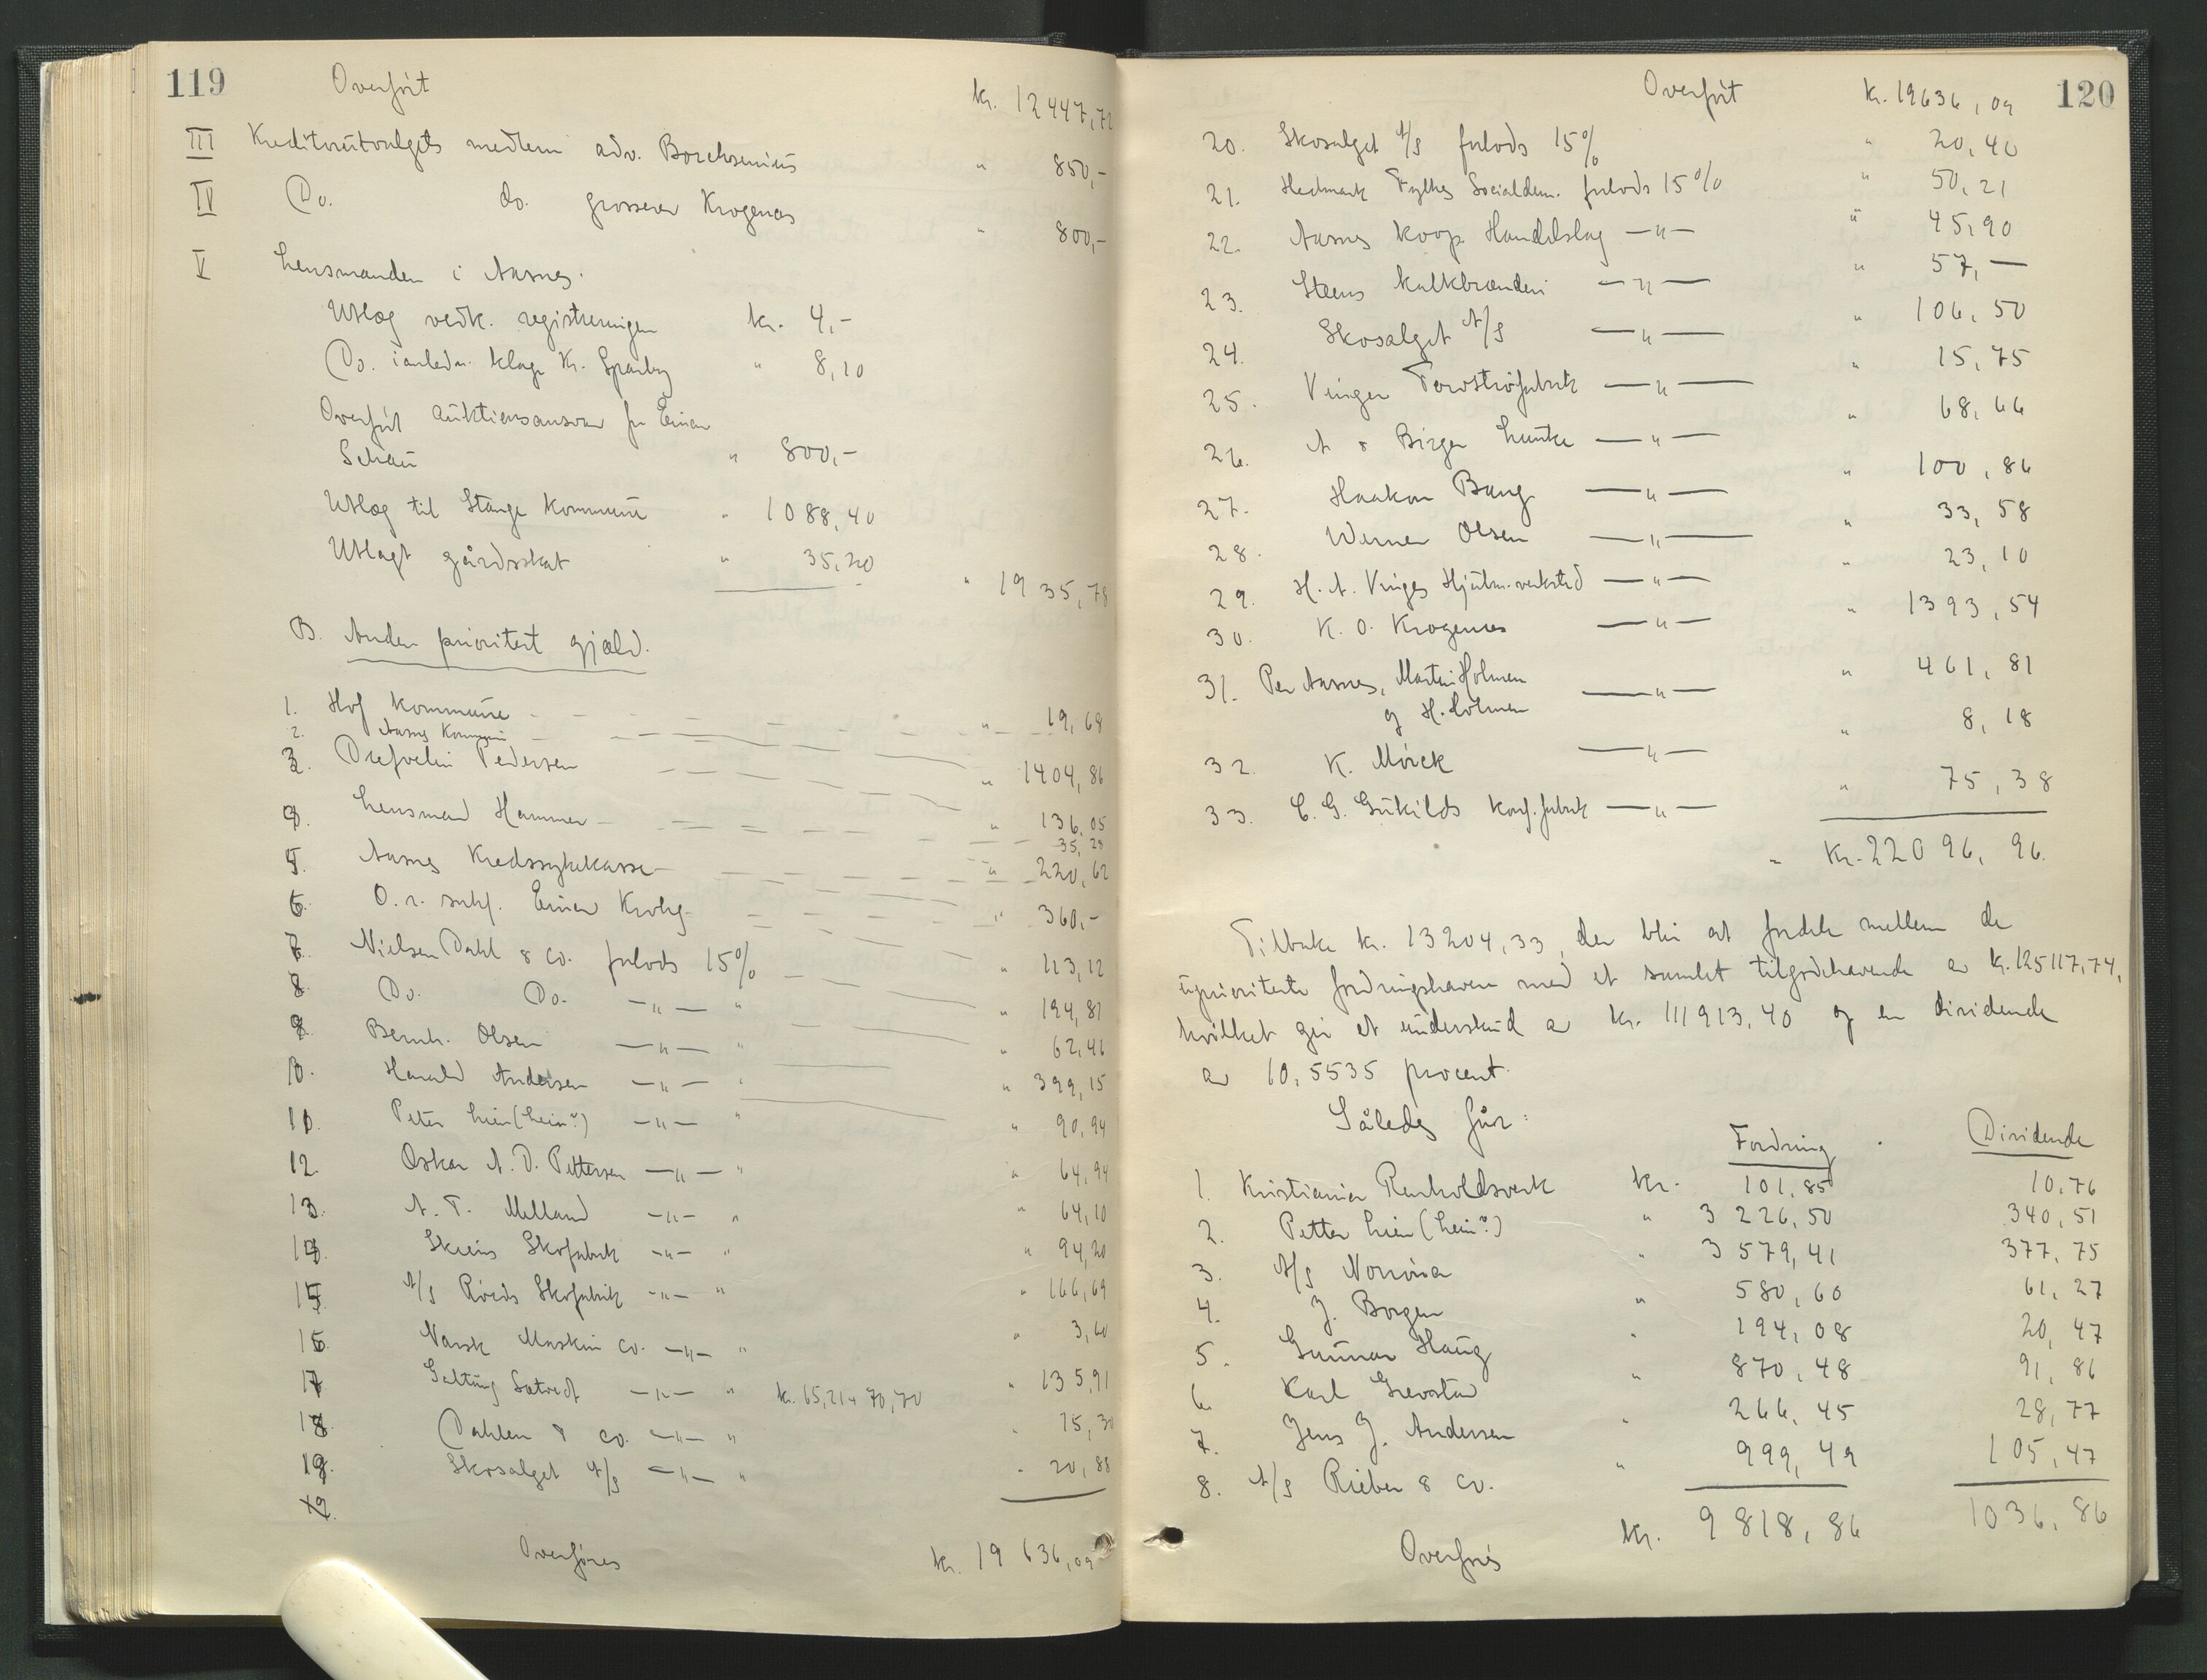 119
Overført kr. 12447,72
III Kreditorutvalgets medlem adv. Borchsenius " 850,-
IV Do. do. grosserer Krogenæs " 800,-
V Lensmanden i Aasnes.
Utlæg vedk. registreringen kr. 4,-
Do. i anledn. klage Kr. Sparby " 8,10
Overført auktionsansvar for Einar
Schau " 800,-
Utlæg til Stange kommune " 1088,40
Utlagt gårdsskat " 35,20
" 1935,78
B. Anden prioritert gjæld.
1. Hof kommune " 19,68
2. Aasnes Kommune
3. Drefvelin Pedersen " 1404,86
4. Lensmand Hammer " 136,05
35,28
5. Aasnes Kredssykekasse " 220,62
6. O.r. sakf. Einar Krohg " 360,-
7. Nielsen Dahl & Co. forlods 15% " 113,12
8. Do. Do. -"- " " 194,81
9. Bernh. Olsen -"- " " 62,46
10. Harald Andersen -"- " " 399,15
11. Peter Lien (Lein?) -"- " " 90,94
12. Oskar A. D. Pettersen -"- " " 64,94
13. A. T. Melland -"- " " 64,10
14. Skiens Skofabrik -"- " " 94,20
15. A/S Røeds Skofabrik -"- " " 166,69
16. Norsk Maskin Co. -"- " " 3,60
17. Galtung Sætvedt -"- " kr. 65,21 + 70,70 " 135,91
18. Dahlen & Co. -"- " " 15,30
19. Skosalget A/S -"- " " 20,88
19.
Overføres kr. 19 636,09
120
Overført kr. 19636,09
20. Skosalget A/S forlods 15% " 20,40
21. Hedmark Fylkes Socialdem. forlods 15% " 50,21
22. Aasnes koop. Handelslag -"- " 45,90
23. Steens kalkbrænderi -"- " 57,-
24. Skosalget A/S -"- " 106,50
25. Vinger Torvstrøfabrik -"- " 15,75
26. A & Birger Lunke -"- " 68,66
27. Haakon Bang -"- " 100,86
28. Werner Olsen -"- " 33,58
29. H. A. Vinges Hjulm.verksted -"- " 23,10
30. K. O. Krogenæs -"- " 1393,54
31. Per Aasnes, Martin Holmen
og H. Holmen -"- " 461,81
32. K. Mørck -"- " 8,18
33. C. G. Gukilds konf.fabrik -"- " 75,38
" Kr. 22096,96
Tilbake kr. 13204,33, der blir at fordele mellem de
uprioriterte fordringshavere med et samlet tilgodehavende av kr. 125117,74,
hvilket gir et underskud av kr. 111913,40 og en dividende
av 10,5535 procent.
Således får:
Fordring. Dividende
1. Kristiania Renholdsverk kr. 101,85 10,76
2. Petter Lien (Lein?) " 3 226,50 340,51
3. A/S Norrøna " 3 579,41 377,75
4. J. Borgen " 580,60 61,27
5. Gunnar Haug " 194,08 20,47
6. Karl Grevstad " 870,48 91,86
7. Jens J. Andersen " 266,45 28,77
8. A/S Rieber & Co. " 999,49 105,47
Overføres kr. 9 818,86 1036,86